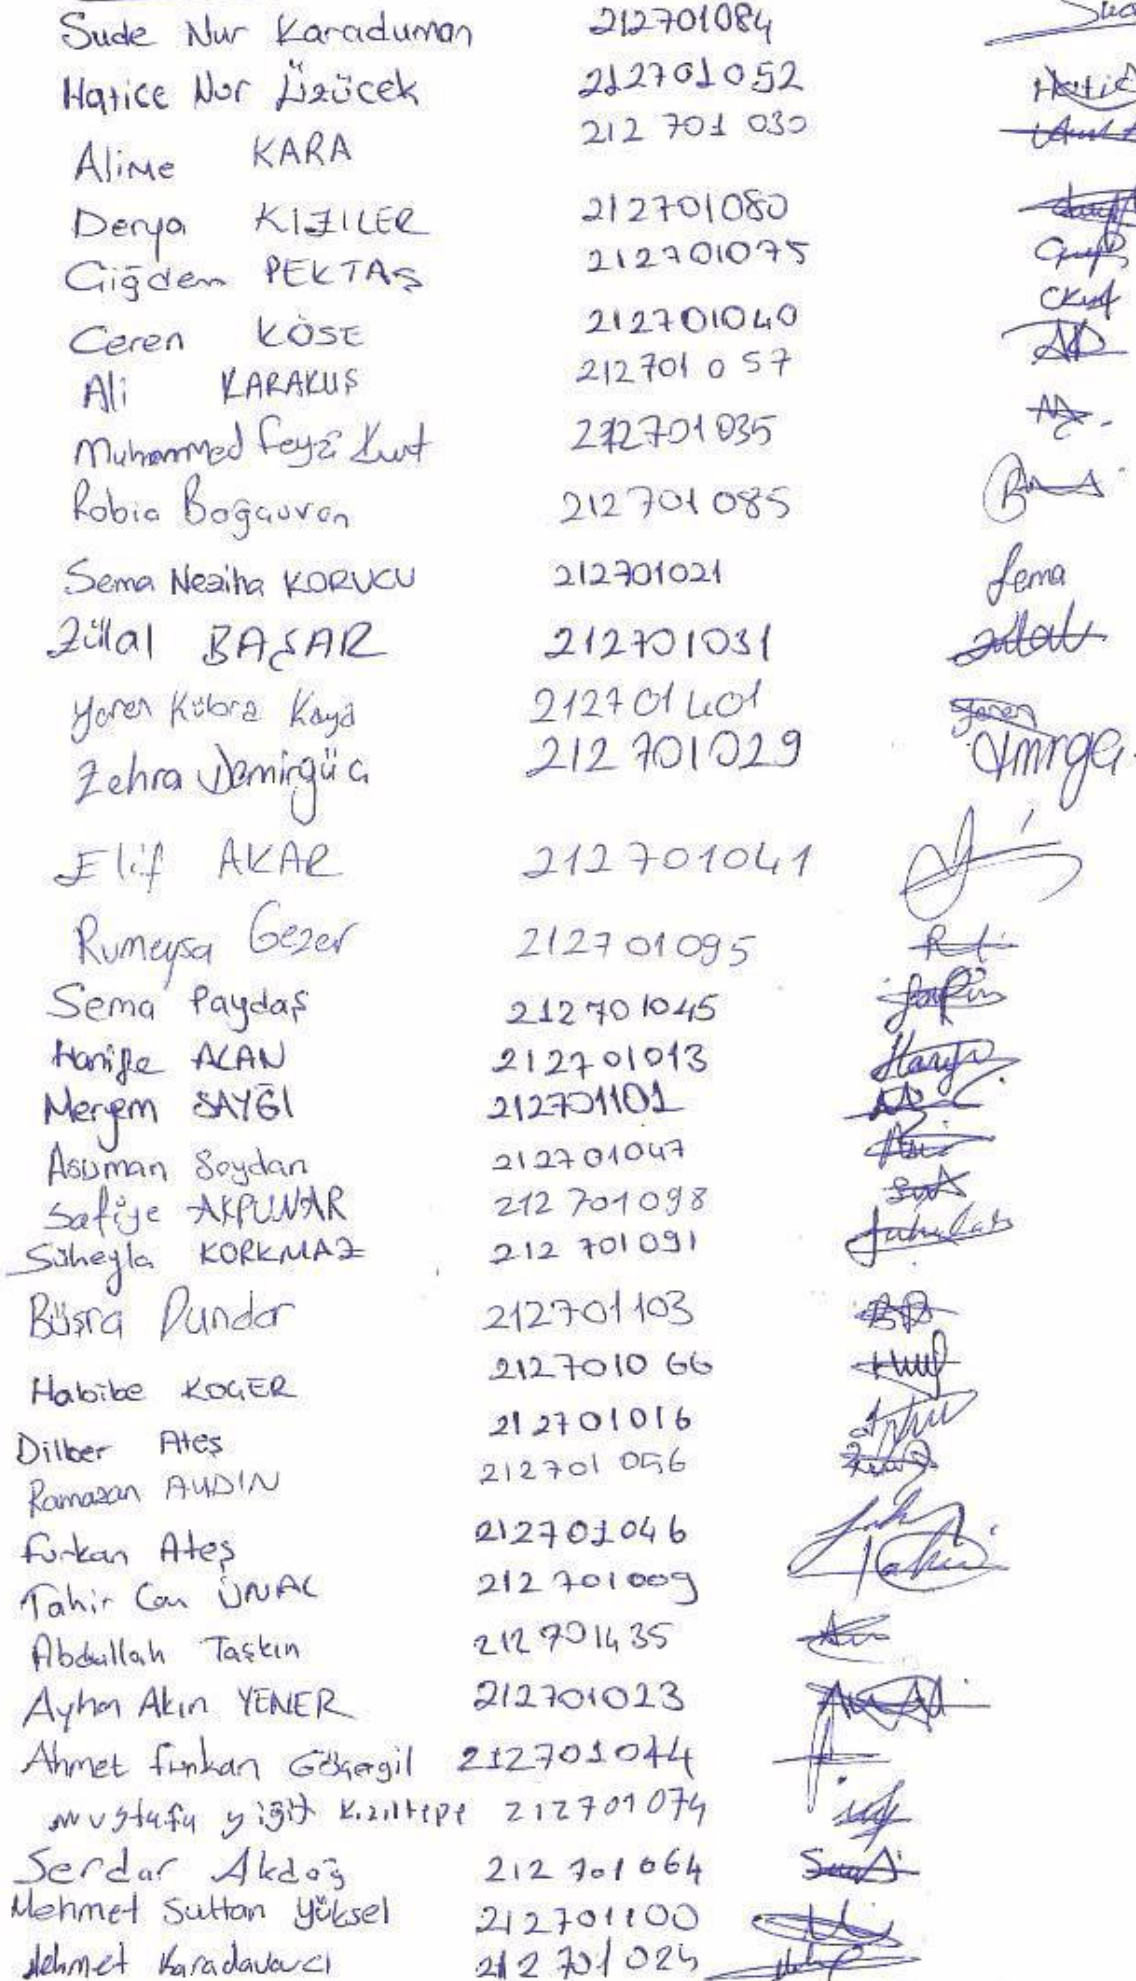 Sude Nur Karaduman 212701084
Hatice Nur Üzücek 212701052 Hatic
Alime KARA 212 701 030
Derya KIZILER 212701080
Çiğdem PEKTAŞ 212701075
Ceren KÖSE 212701040
Ali KARAKUŞ 212701 0 57
Muhammed Feyzi Kurt 212701035
Rabia Boğauvan 212 701 085
Sema Neziha KORUCU 212701021 Sema
Zülal BAŞAR 212701031 Zülal
Yaren Kübra Kaya 212701401 Yaren
Zehra Demirgüç 212 701029
Elif AKAR 212701041
Rumeysa Gezer 212701095
Sema Paydaş 212701045
Hanife ALAN 212701013
Meryem SAYGI 212701101
Asuman Soydan 212701047
Safiye AKPUNAR 212 701098
Süheyla KORKMAZ 212 701091
Büşra Dundar 212701103
Habibe KOÇER 2127010 66
Dilber Ateş 212701016
Ramazan AYDIN 212701 056
Furkan Ateş 212701046
Tahir Can ÜNAL 212 701009
Abdullah Taşkın 212701435
Ayhan Akın YENER 212701023
Ahmet Furkan Göçergil 212701044
Mustafa yiğit Kızıltepe 212701074
Serdar Akdağ 212 701064
Mehmet Sultan Yüksel 212701100
Mehmet Karadavacı 212 701 025